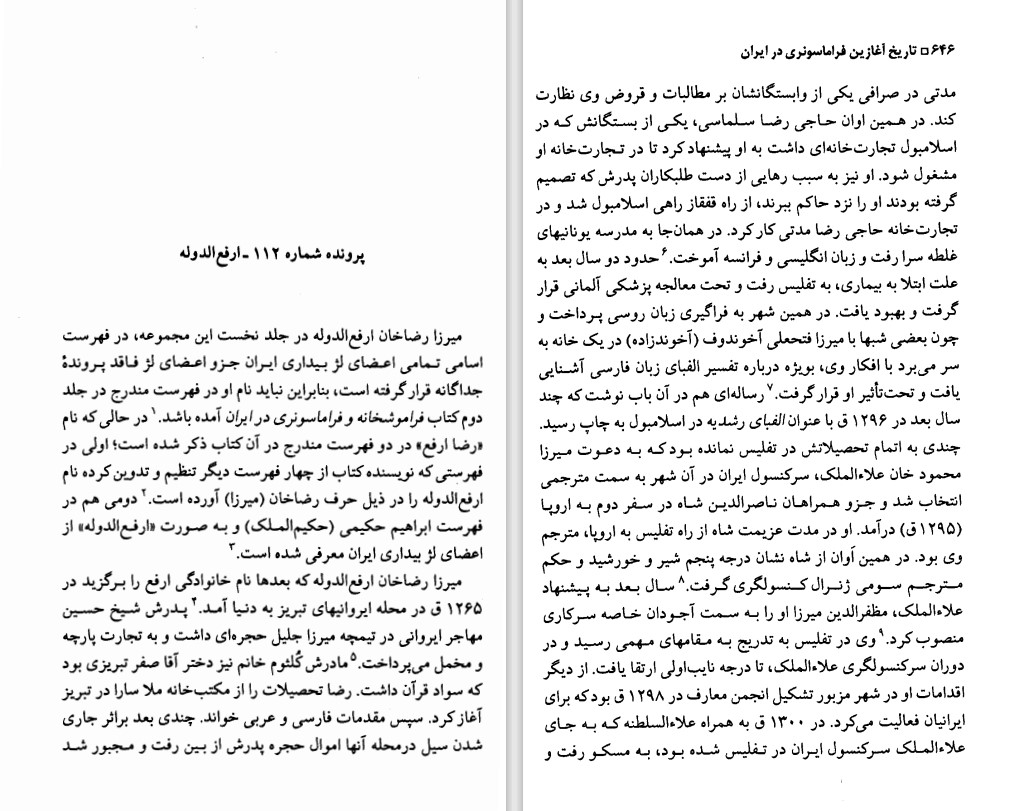 پرونده شماره ۱۱۲ ـ ارفع‌الدوله
میرزا رضاخان ارفع‌الدوله در جلد نخست این مجموعه، در فهرست
اسامی تمامی اعضای لژ بیداری ایران جزو اعضای لژ فاقد پروندهٔ
جداگانه قرار گرفته است، بنابراین نباید نام او در فهرست مندرج در جلد
دوم کتاب فراموشخانه و فراماسونری در ایران آمده باشد.۱ در حالی که نام
«رضا ارفع» در دو فهرست مندرج در آن کتاب ذکر شده است؛ اولی در
فهرستی که نویسنده کتاب از چهار فهرست دیگر تنظیم و تدوین کرده نام
ارفع‌الدوله را در ذیل حرف رضاخان (میرزا) آورده است.۲ دومی هم در
فهرست ابراهیم حکیمی (حکیم‌الملک) و به صورت «ارفع‌الدوله» از
اعضای لژ بیداری ایران معرفی شده است.۳
میرزا رضاخان ارفع‌الدوله که بعدها نام خانوادگی ارفع را برگزید در
۱۲۶۵ ق در محله ایروانیهای تبریز به دنیا آمد.۴ پدرش شیخ حسین
مهاجر ایروانی در تیمچه میرزا جلیل حجره‌ای داشت و به تجارت پارچه
و مخمل می‌پرداخت.۵ مادرش کُلثوم خانم نیز دختر آقا صفر تبریزی بود
که سواد قرآن داشت. رضا تحصیلات را از مکتب‌خانه ملا سارا در تبریز
آغاز کرد. سپس مقدمات فارسی و عربی خواند. چندی بعد براثر جاری
شدن سیل درمحله آنها اموال حجره پدرش از بین رفت و مجبور شد
۶۴۶ □ تاریخ آغازین فراماسونری در ایران
مدتی در صرافی یکی از وابستگانشان بر مطالبات و قروض وی نظارت
کند. در همین اوان حاجی رضا سلماسی، یکی از بستگانش که در
اسلامبول تجارت‌خانه‌ای داشت به او پیشنهاد کرد تا در تجارت‌خانه او
مشغول شود. او نیز به سبب رهایی از دست طلبکاران پدرش که تصمیم
گرفته بودند او را نزد حاکم ببرند، از راه قفقاز راهی اسلامبول شد و در
تجارت‌خانه حاجی رضا مدتی کار کرد. در همان‌جا به مدرسه یونانیهای
غلطه سرا رفت و زبان انگلیسی و فرانسه آموخت.۶ حدود دو سال بعد به
علت ابتلا به بیماری، به تفلیس رفت و تحت معالجه پزشکی آلمانی قرار
گرفت و بهبود یافت. در همین شهر به فراگیری زبان روسی پرداخت و
چون بعضی شبها با میرزا فتحعلی آخوندوف (آخوندزاده) در یک خانه به
سر می‌برد با افکار وی، بویژه درباره تفسیر الفبای زبان فارسی آشنایی
یافت و تحت‌تأثیر او قرار گرفت.۷ رساله‌ای هم در آن باب نوشت که چند
سال بعد در ۱۲۹۶ ق با عنوان الفبای رشدیه در اسلامبول به چاپ رسید.
چندی به اتمام تحصیلاتش در تفلیس نمانده بود که به دعوت میرزا
محمود خان علاءالملک، سرکنسول ایران در آن شهر به سمت مترجمی
انتخاب شد و جزو همراهان ناصرالدین شاه در سفر دوم به اروپا
(۱۲۹۵ ق) درآمد. او در مدت عزیمت شاه از راه تفلیس به اروپا، مترجم
وی بود. در همین اَوان از شاه نشان درجه پنجم شیر و خورشید و حکم
مترجم سومی ژنرال کنسولگری گرفت.۸ سال بعد به پیشنهاد
علاءالملک، مظفرالدین میرزا او را به سمت آجودان خاصه سرکاری
منصوب کرد.۹ وی در تفلیس به تدریج به مقامهای مهمی رسید و در
دوران سرکنسولگری علاءالملک، تا درجه نایب‌اولی ارتقا یافت. از دیگر
اقدامات او در شهر مزبور تشکیل انجمن معارف در ۱۲۹۸ ق بود که برای
ایرانیان فعالیت می‌کرد. در ۱۳۰۰ ق به همراه علاءالسلطنه که به جای
علاءالملک سرکنسول ایران در تفلیس شده بود، به مسکو رفت و